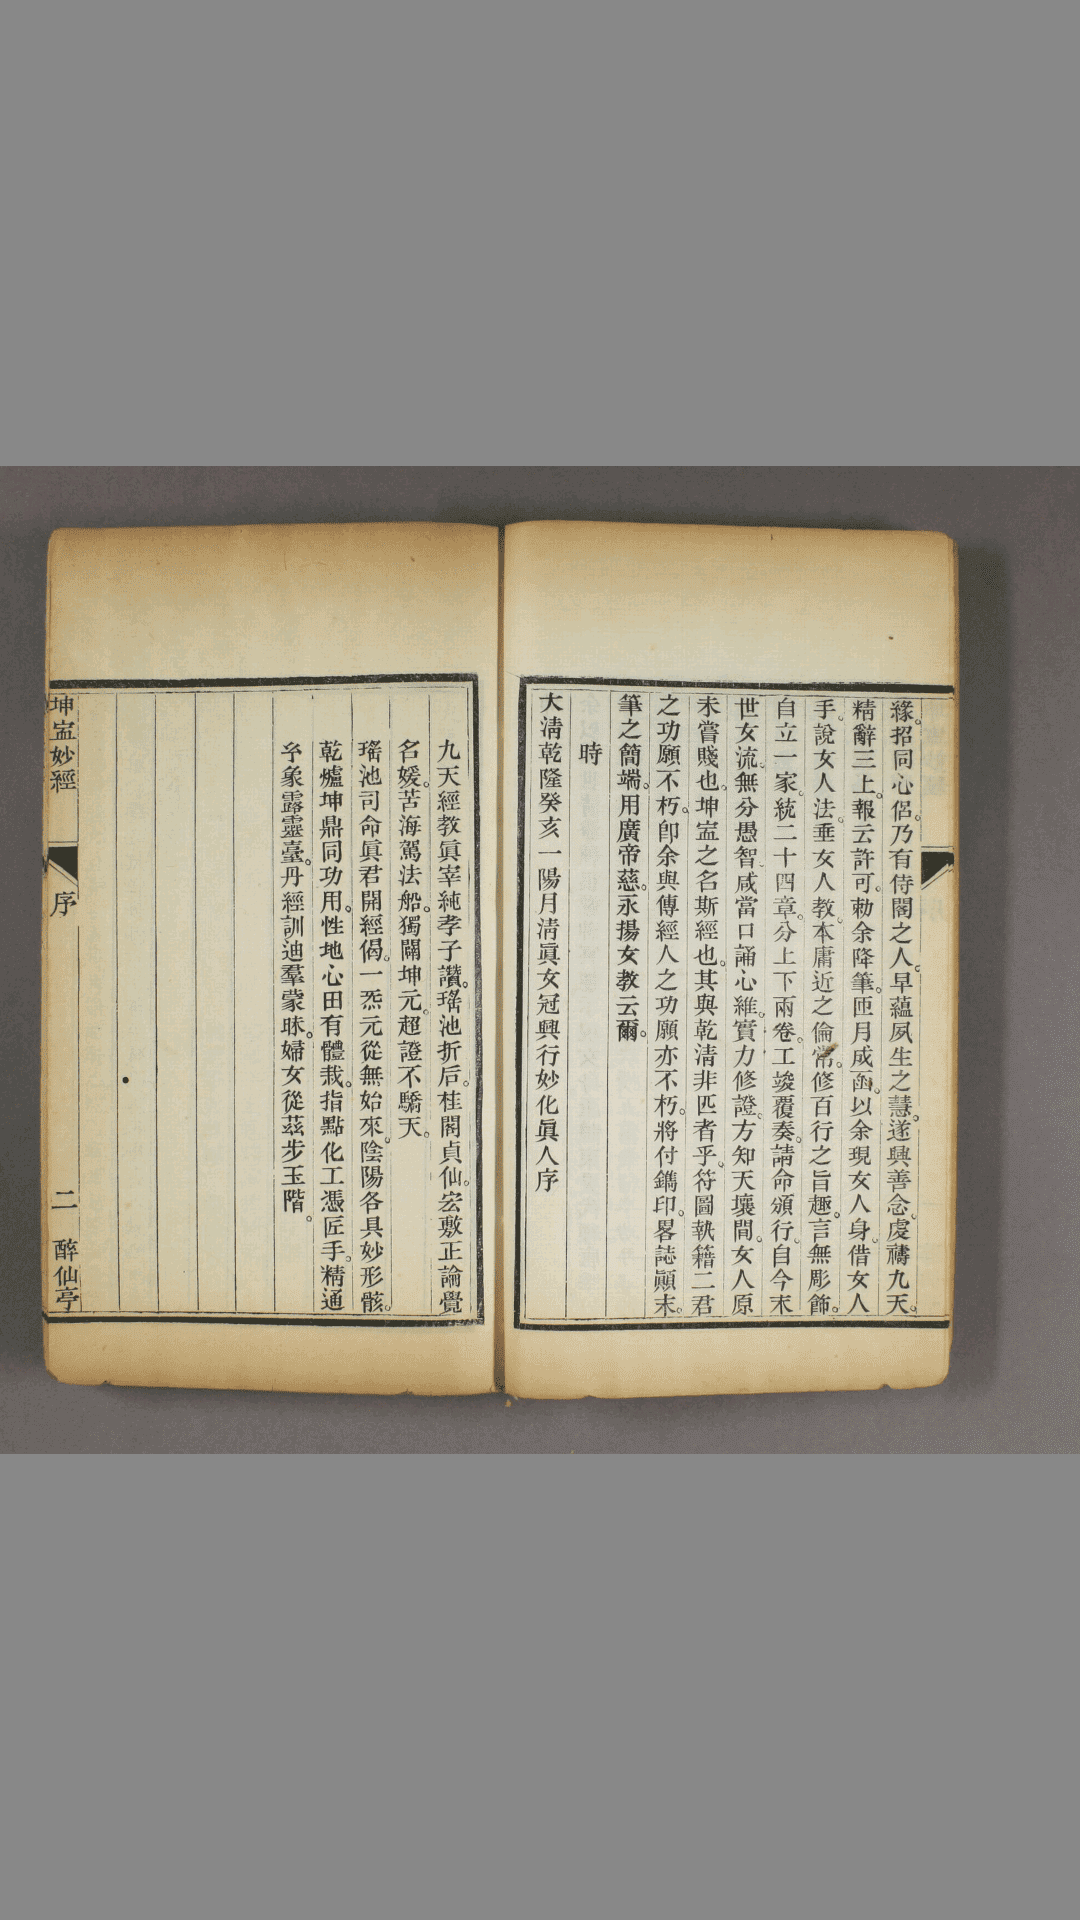 緣。招同心侶。乃有侍閣之人。早蘊夙生之慧。遂興善念。虔禱九天。
精辭三上。報云許可。勅余降筆。匝月成函。以余現女人身。借女人
手。說女人法。垂女人教。本庸近之倫常。修百行之旨趣。言無彫飾。
自立一家。統二十四章。分上下兩卷。工竣覆奏。請命頒行。自今末
世女流。無分愚智。咸當口誦心維。實力修證。方知天壤間。女人原
未嘗賤也。坤寍之名斯經也。其與乾清非匹者乎。符圖執籍二君
之功願不朽。卽余與傳經人之功願亦不朽。將付鐫印。畧誌顚末。
筆之簡端。用廣帝慈。永揚女教云爾。
時
大淸乾隆癸亥一陽月淸眞女冠興行妙化眞人序
九天經教眞宰純孝子讚。瑤池折后。桂閣貞仙。宏敷正論覺
名媛。苦海駕法船。獨闢坤元。超證不驕天。
瑤池司命眞君開經偈。一炁元從無始來。陰陽各具妙形骸。
乾爐坤鼎同功用。性地心田有體栽。指點化工憑匠手。精通
予象露靈臺。丹經訓迪羣蒙昧。婦女從茲步玉階。
坤寍妙經
序
二
醉仙亭